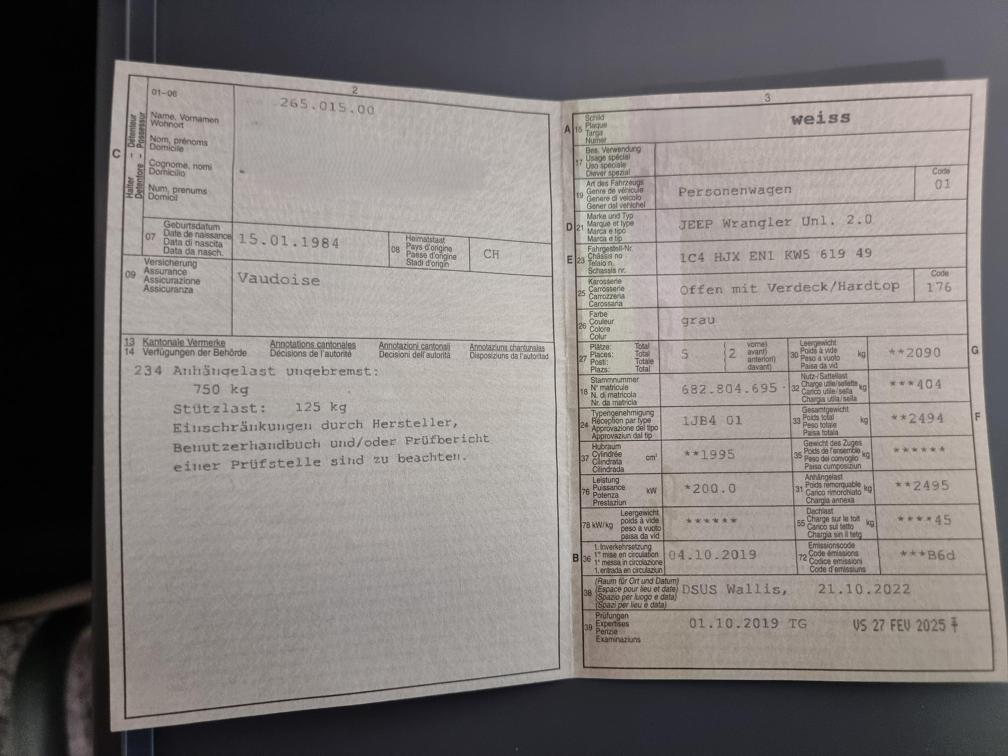 2
01-06
265.015.00
C
Halter
Détenteur
Detentore
Possessur
Name, Vornamen
Wohnort
Nom, prénoms
Domicile
Cognome, nomi
Domicilio
Num, prenums
Domicil
07
Geburtsdatum
Date de naissance
Data di nascita
Data da nasch.
15.01.1984
08
Heimatstaat
Pays d'origine
Paese d'origine
Stadi d'origin
CH
09
Versicherung
Assurance
Assicurazione
Assicuranza
Vaudoise
13 Kantonale Vermerke Annotations cantonales Annotazioni cantonali Annotaziuns chantunalas
14 Verfügungen der Behörde. Décisions de l'autorité Decisioni dell'autorità Disposiziuns da l'autoritad
234 Anhängelast ungebremst:
750 kg
Stützlast: 125 kg
Einschränkungen durch Hersteller,
Benutzerhandbuch und/oder Prüfbericht
einer Prüfstelle sind zu beachten.
3
A
15
Schild
Plaque
Targa
Numer
weiss
17
Bes. Verwendung
Usage spécial
Uso speciale
Diever spezial
19
Art des Fahrzeugs
Genre de véhicule
Genere di veicolo
Gener dal vehichel
Personenwagen
Code
01
D
21
Marke und Typ
Marque et type
Marca e tipo
Marca e tip
JEEP Wrangler Unl. 2.0
E
23
Fahrgestell-Nr.
Châssis no
Telaio n.
Schassis nr.
1C4 HJX EN1 KW5 619 49
25
Karosserie
Carrosserie
Carrozzeria
Carossaria
Offen mit Verdeck/Hardtop
Code
176
26
Farbe
Couleur
Colore
Colur
grau
27
Plätze: Total
Places: Total
Posti: Totale
Plazs: Total
5
(2
vorne)
avant)
anteriori)
davant)
30
Leergewicht
Poids à vide
Peso a vuoto
Paisa da vid
kg
**2090
G
18
Stammnummer
N° matricule
N. di matricola
Nr. da matricla
682.804.695
32
Nutz-/Sattellast
Charge utile/sellette
Carico utile/sella
Chargia utila/sella
kg
***404
24
Typengenehmigung
Réception par type
Approvazione del tipo
Approvaziun dal tip
1JB4 01
33
Gesamtgewicht
Poids total
Peso totale
Paisa totala
kg
**2494
F
37
Hubraum
Cylindrée
Cilindrata
Cilindrada
cm³
**1995
35
Gewicht des Zuges
Poids de l'ensemble
Peso del convoglio
Paisa cumposiziun
kg
******
76
Leistung
Puissance
Potenza
Prestaziun
kW
*200.0
31
Anhängelast
Poids remorquable
Carico rimorchiato
Chargia annexa
kg
**2495
78 kW/kg
Leergewicht
poids à vide
peso a vuoto
paisa da vid
******
55
Dachlast
Charge sur le toit
Carico sul tetto
Chargia sin il tetg
kg
****45
B
36
1. Inverkehrsetzung
1re mise en circulation
1a messa in circolazione
1. entrada en circulaziun
04.10.2019
72
Emissionscode
Code émissions
Codice emissioni
Code d'emissiuns
***B6d
38
(Raum für Ort und Datum)
(Espace pour lieu et date)
(Spazio per luogo e data)
(Spazi per lieu e data)
DSUS Wallis, 21.10.2022
39
Prüfungen
Expertises
Perizie
Examinaziuns
01.10.2019 TG
VS 27 FEV 2025